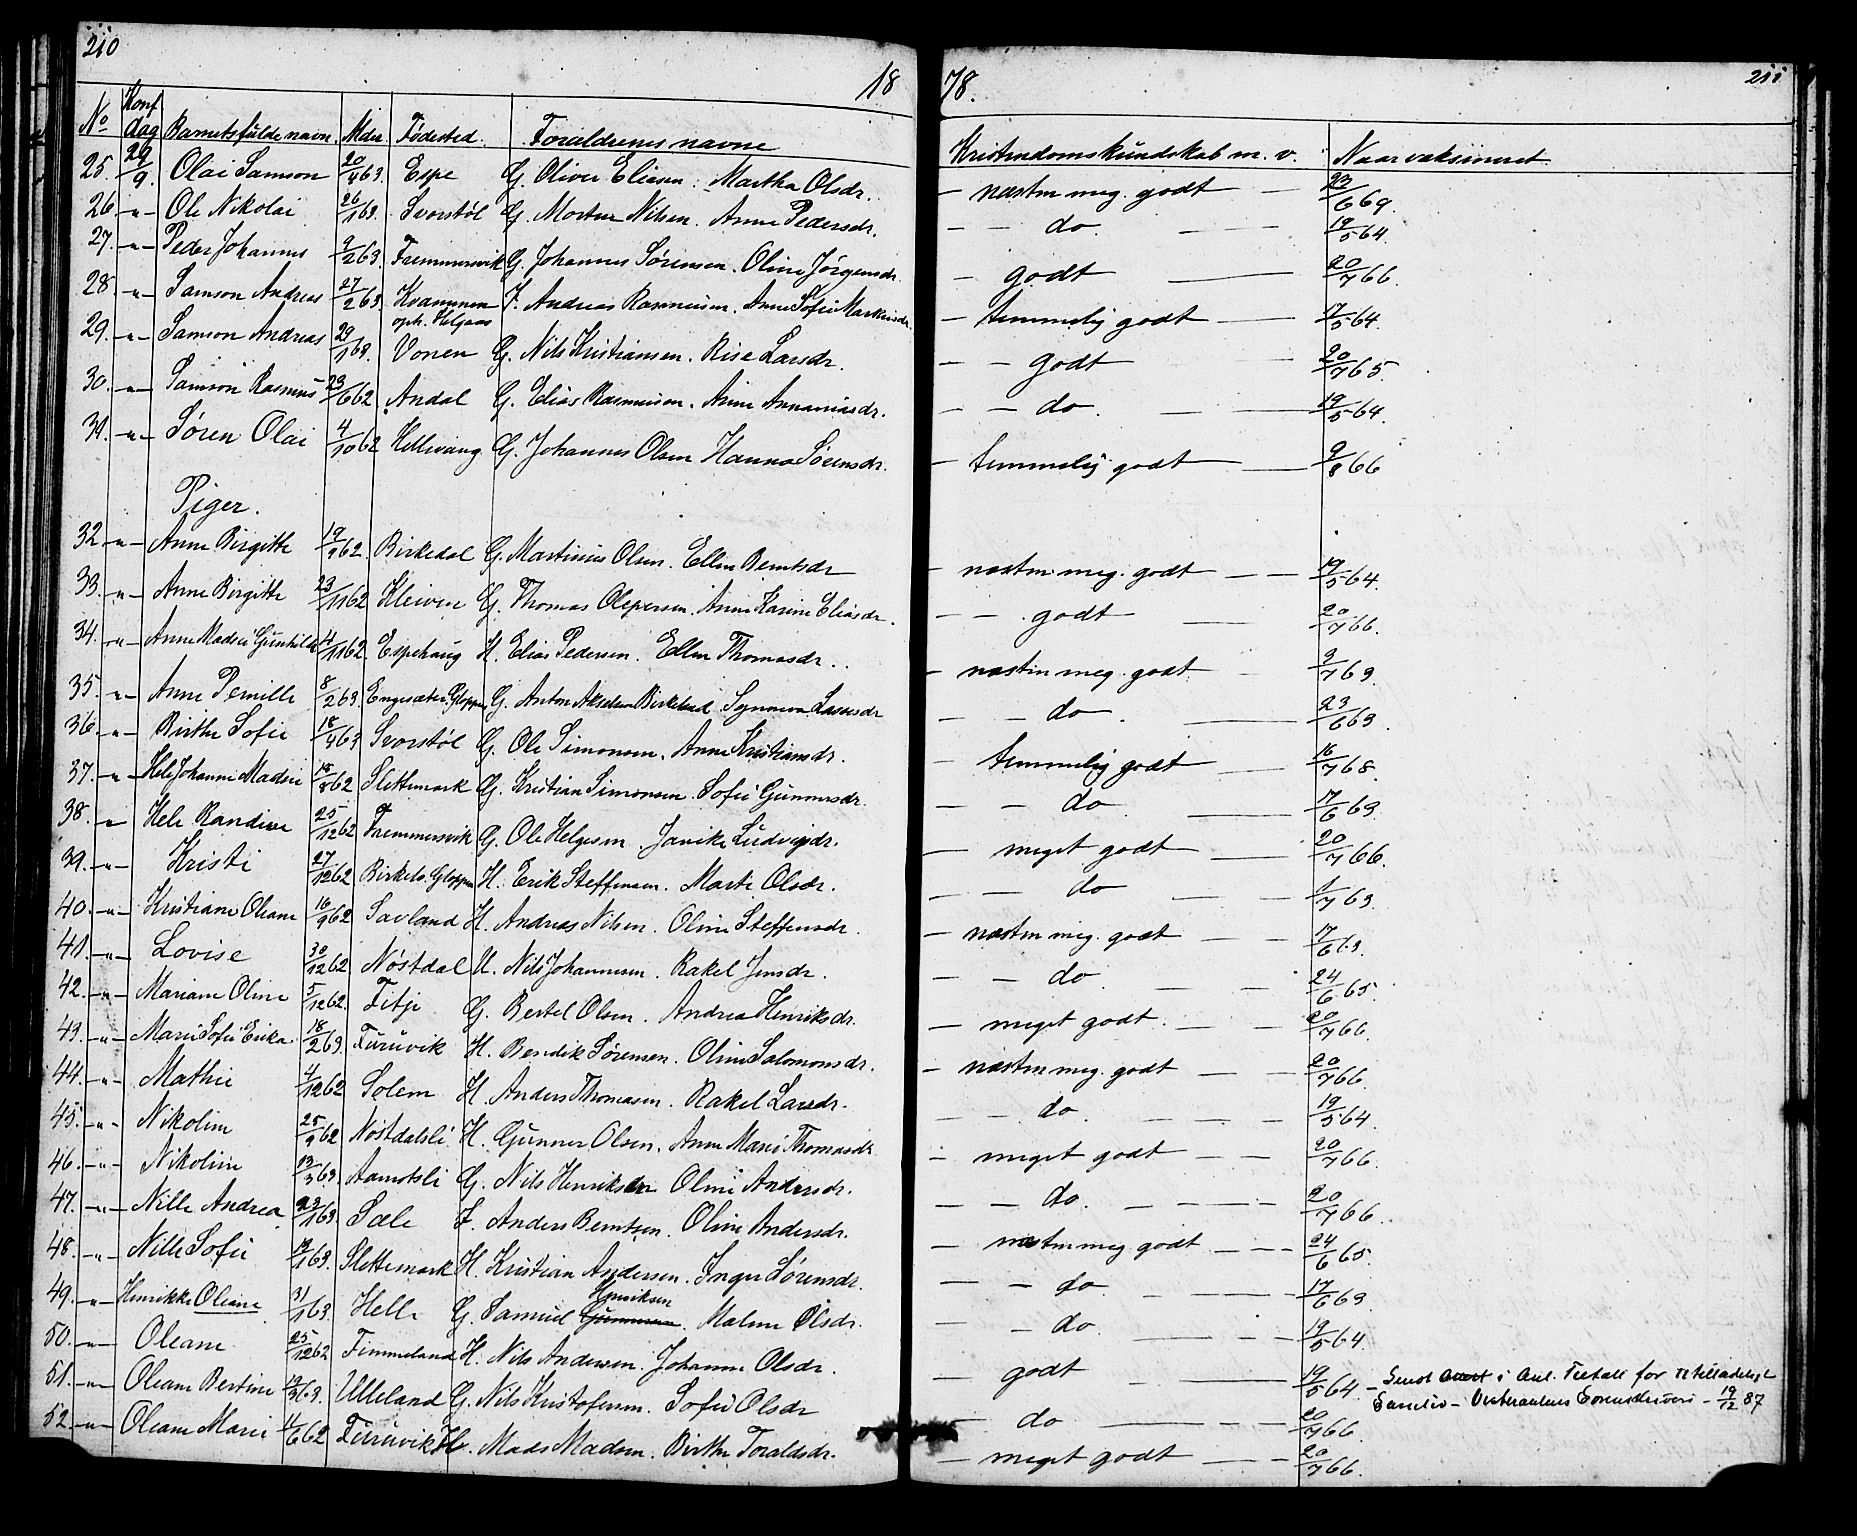 210
18
No Konf. dag Barnets fulde navn. Alder Fødested. Forældrenes navne
25. 29/9. Olai Samson 20/4 63. Espe G. Oliver Eliasen. Martha Olsdr.
26. -"- Ole Nikolai 26/1 63. Svorstøl G. Morten Nilsen. Anne Pedersdr.
27. -"- Peder Johannes 9/2 63. Fremmersvik G. Johannes Sørensen. Oline Jørgensdr.
28. -"- Samson Andreas 27/2 63. Kvammen F. Andreas Rasmussen. Anne Sofie Markusdr.
oph. Helgaas
29. -"- Samson Andreas 29/1 63. Vonen G. Nils Kristiansen. Rise Larsdr.
30. -"- Samson Rasmus 23/6 62 Andal G. Elias Rasmussen. Anne Annaniasdr.
31. -"- Søren Olai 4/10 62 Hellevang G. Johannes Olsen Hanna Sørensdr.
Piger.
32 -"- Anne Birgitte 19/9 62. Birkedal G. Martinus Olsen. Ellen Berntsdr
33. -"- Anne Birgitte 23/11 62 Kleiven G. Thomas Olepersen. Anne Karine Eliasdr.
34. -"- Anne Madsei Gunhilde 4/11 62. Espehaug H. Elias Pedersen. Ellen Thomasdr..
35. -"- Anne Pernille 8/2 63. Engesæter. Gloppen G. Anton Akselsen Birkelund. Synneva Lassesdr
36. -"- Birthe Sofie 18/4 63 Svorstøl G. Ole Simonsen. Anne Kristiansdr.
37. -"- Hele Johanne Madsei 18/8 62 Slettemark G. Kristian Simonsen. Sofie Gunnersdr.
38. -"- Hele Randine 25/12 62 Fremmersvik G. Ole Helgesen. Janike Ludvigsdr.
39. -"- Kristi 27/12 62 Birkelo. Gloppen H. Erik Steffensen. Marte Olsdr.
40. -"- Kristiane Oleane 16/9 62 Savland H. Andreas Nilsen. Oline Steffensdr.
41. -"- Lovise 30/12 62 Nøstdal U. Nils Johannesen. Rakel Jensdr.
42. -"- Mariane Oline 5/12 62. Fitje G. Bertel Olsen. Andrea Henriksdr.
43. -"- Marie Sofie Erika. 18/2 63. Furuvik H. Bendik Sørensen. Oline Salomonsdr.
44. -"- Mathie 4/12 62 Solem H. Anders Thomasen. Rakel Larsdr.
45. -"- Nikoline 25/9 62 Nøstdalsli H. Gunner Olsen. Anne Marie Thomasdr
46. -"- Nikoline 13/3 63. Aamotsli G. Nils Henriksen Oline Andersdr.
47. -"- Nille Andrea 23/1 63 Sæle F. Anders Berntsen. Oline Andersdr.
48. -"- Nille Sofie 19/1 63. Slettemark H. Kristian Andersen. Inger Sørensdr.
Henriksen
49. -"- Henrikke Oliane 31/1 63. Helle G. Samuel Gunnersen. Malene Olsdr.
50. -"- Oleane 25/12 62 Timmeland H. Nils Andersen. Johanne Olsdr.
51. -"- Oleane Bertine 13/3 63. Ulleland G. Nils Kristofersen. Sofie Olsdr
52. -"- Oleane Marie 11/6 62 Furuvik H. Mads Madsen. Birthe Toraldsdr.
78.
211
Kristendomskundskab m. v. Naar vaksineret
- næsten meg. godt - 23/6 69.
- - do. - - 19/5 64.
- godt - 20/7 66.
- temmelig godt - 17/5 64.
- - godt - 20/7 65.
- - do. - - 19/5 64.
- temmelig godt - 9/8 66
- næsten meg. godt - - 19/5 64.
- - godt - 20/7 66.
- næsten meg. godt - 9/7 63.
- - do. - 23/6 63.
- temmelig godt - 16/7 68.
- - do - 17/6 63.
- meget godt - 20/7 66.
- - do - - 1/7 63.
- næsten meg. godt - - 17/6 63.
- - do. - - 24/6 65.
- meget godt. - - 20/7 66.
- næsten meg. godt - - 20/7 66.
- - do. - - - 19/5 64.
- meget godt - - 20/7 66.
- - do. - - - 20/7 66.
- næsten meg godt - - - 24/6 65.
- - do. - - - 17/6 63.
- - do. - - - 19/5 64.
godt - - 19/5 64 - Sendt i Anl.
- do - - - 20/7 66. - 19/12 87
- meget godt - - - 20/7 66.